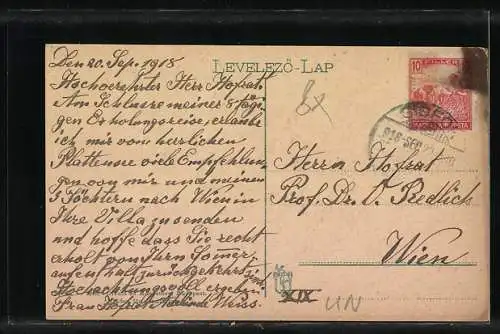 Den 20. Sep. 1918
Hochverehrter Herr Hofrat.
Am Schlusse meiner 8 tägi-
gen Erholungsreise, erlaube
ich mir vom herrlichen
Plattensee viele Empfehlun-
gen von mir und meinen
3 Töchtern nach Wien in
Ihre Villa zu senden
und hoffe dass Sie recht
erholt von Ihrem Sommer-
aufenthalt zurückgekehrt sind.
Hochachtungsvoll ergeben
Frau Hofrat Weiss.
LEVELEZŐ-LAP
10
FILLÉR
MAGYAR KIR. POSTA
918 SEP
Herrn Hofrat
Prof. Dr. O. Redlich
Wien
XIX